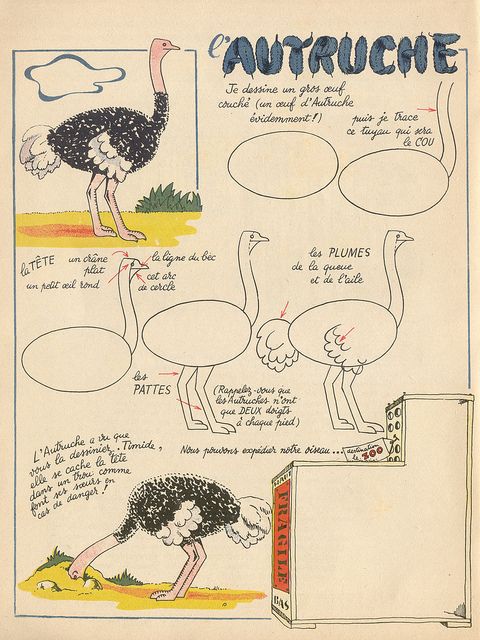 l'AUTRUCHE
Je dessine un gros œuf
couché (un œuf d'Autruche
évidemment!)
puis je trace
ce tuyau qui sera
le COU
la TÊTE
un crâne
plat
un petit œil rond
la ligne du bec
cet arc
de cercle
les PLUMES
de la queue
et de l'aile
les
PATTES
(Rappelez-vous que
les Autruches n'ont
que DEUX doigts
à chaque pied)
L'Autruche a vu que
vous la dessiniez. Timide,
elle se cache la tête
dans un trou comme
font ses sœurs en
cas de danger!
Nous pouvons expédier notre oiseau...
destination
le ZOO
HAUT
FRAGILE
BAS